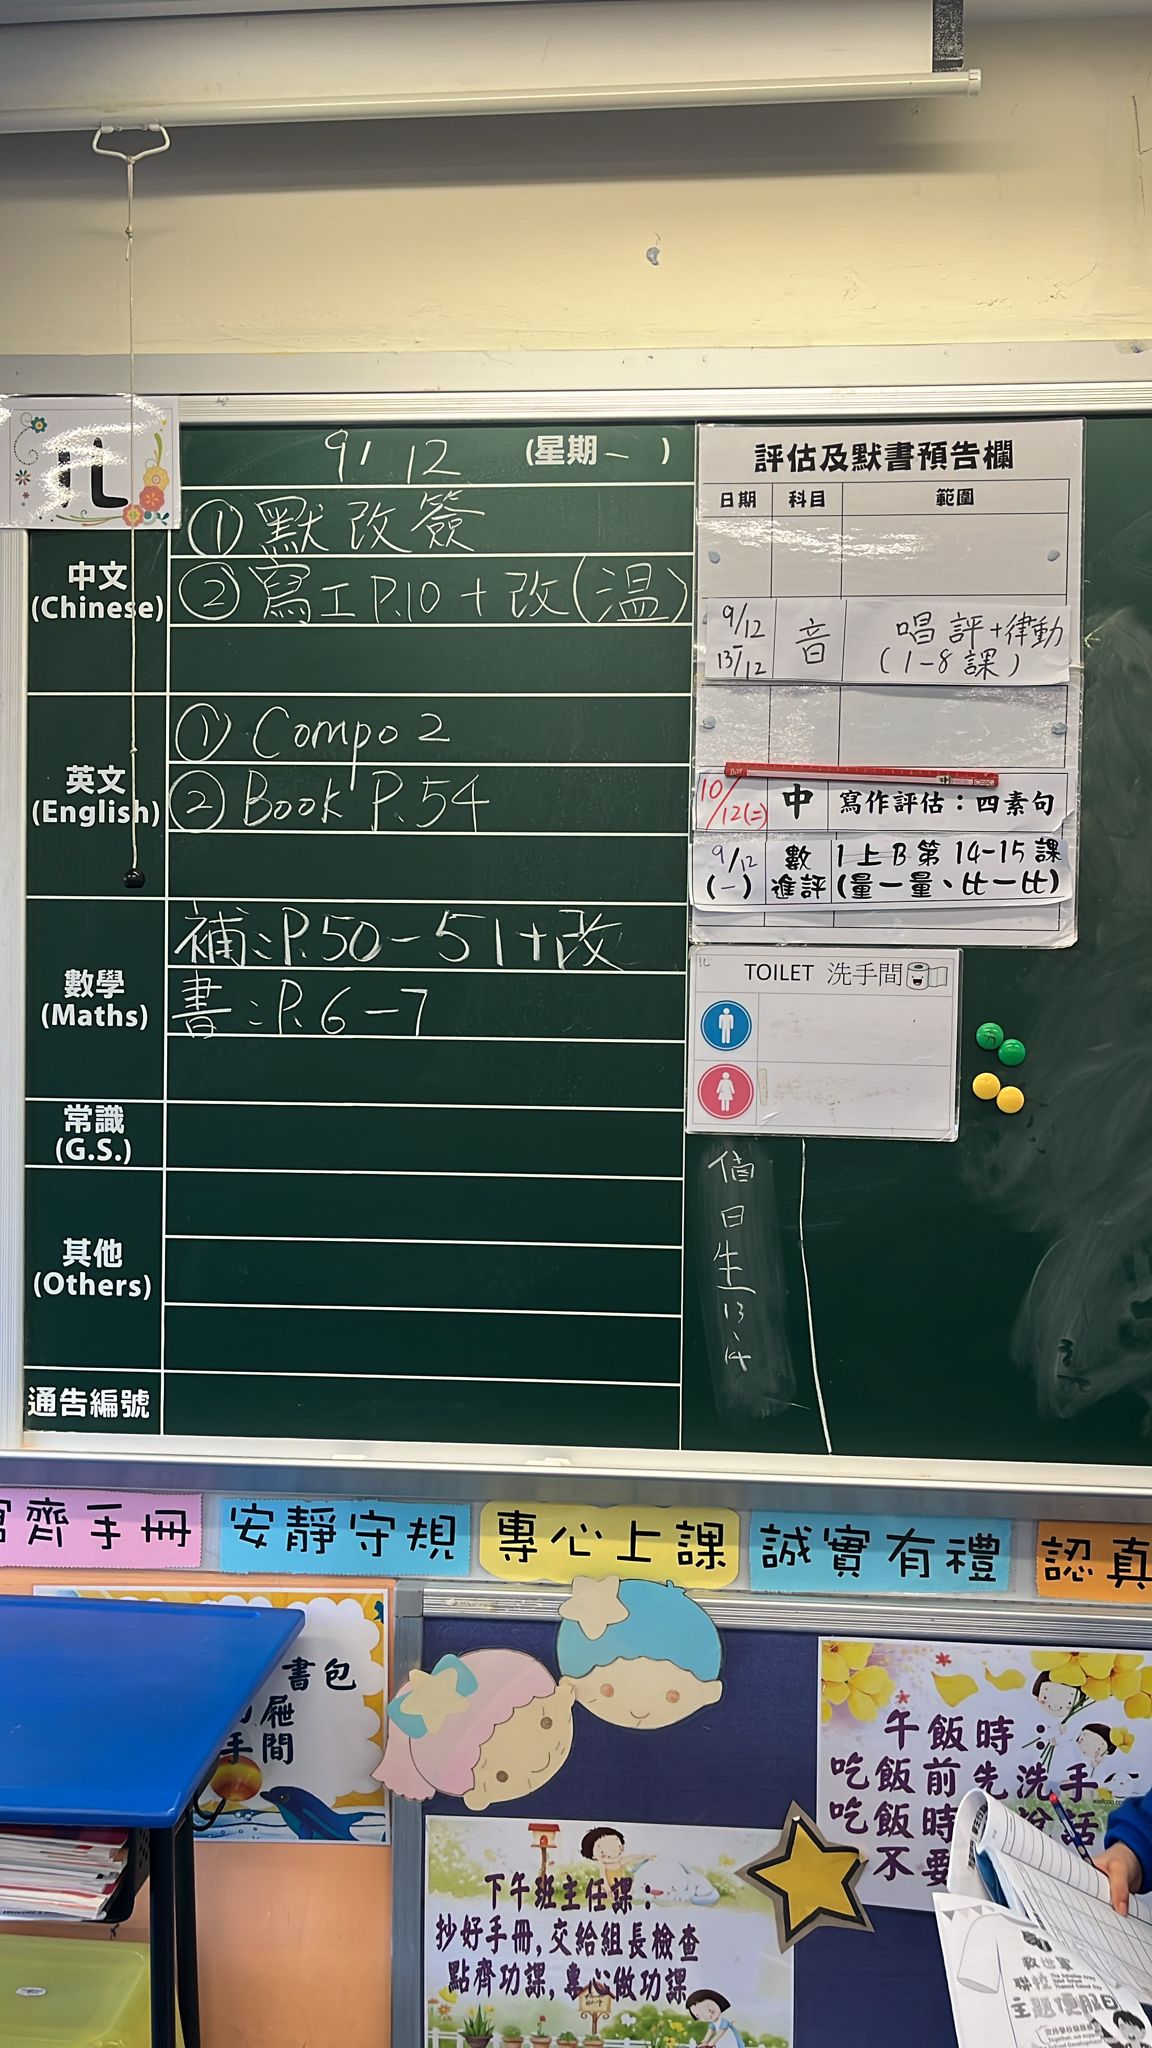 1L
9/12 (星期一)
中文
(Chinese)
① 默改簽
② 寫工P.10+改(溫)
英文
(English)
① Compo 2
② Book P.54
數學
(Maths)
補:P.50-51+改
書:P.6-7
常識
(G.S.)
其他
(Others)
通告編號
評估及默書預告欄
日期 科目 範圍
9/12
13/12 音 唱評+律動
(1-8課)
10/12(二) 中 寫作評估:四素句
9/12
(一) 數
進評 1上B第14-15課
(量一量、比一比)
1L
TOILET 洗手間
值日生
13、14
齊手冊
安靜守規
專心上課
誠實有禮
認真
書包
屜
手間
下午班主任課:
抄好手冊,交給組長檢查
點齊功課,專心做功課
午飯時:
吃飯前先洗手
吃飯時 說話
不要
救世軍
主題便服日